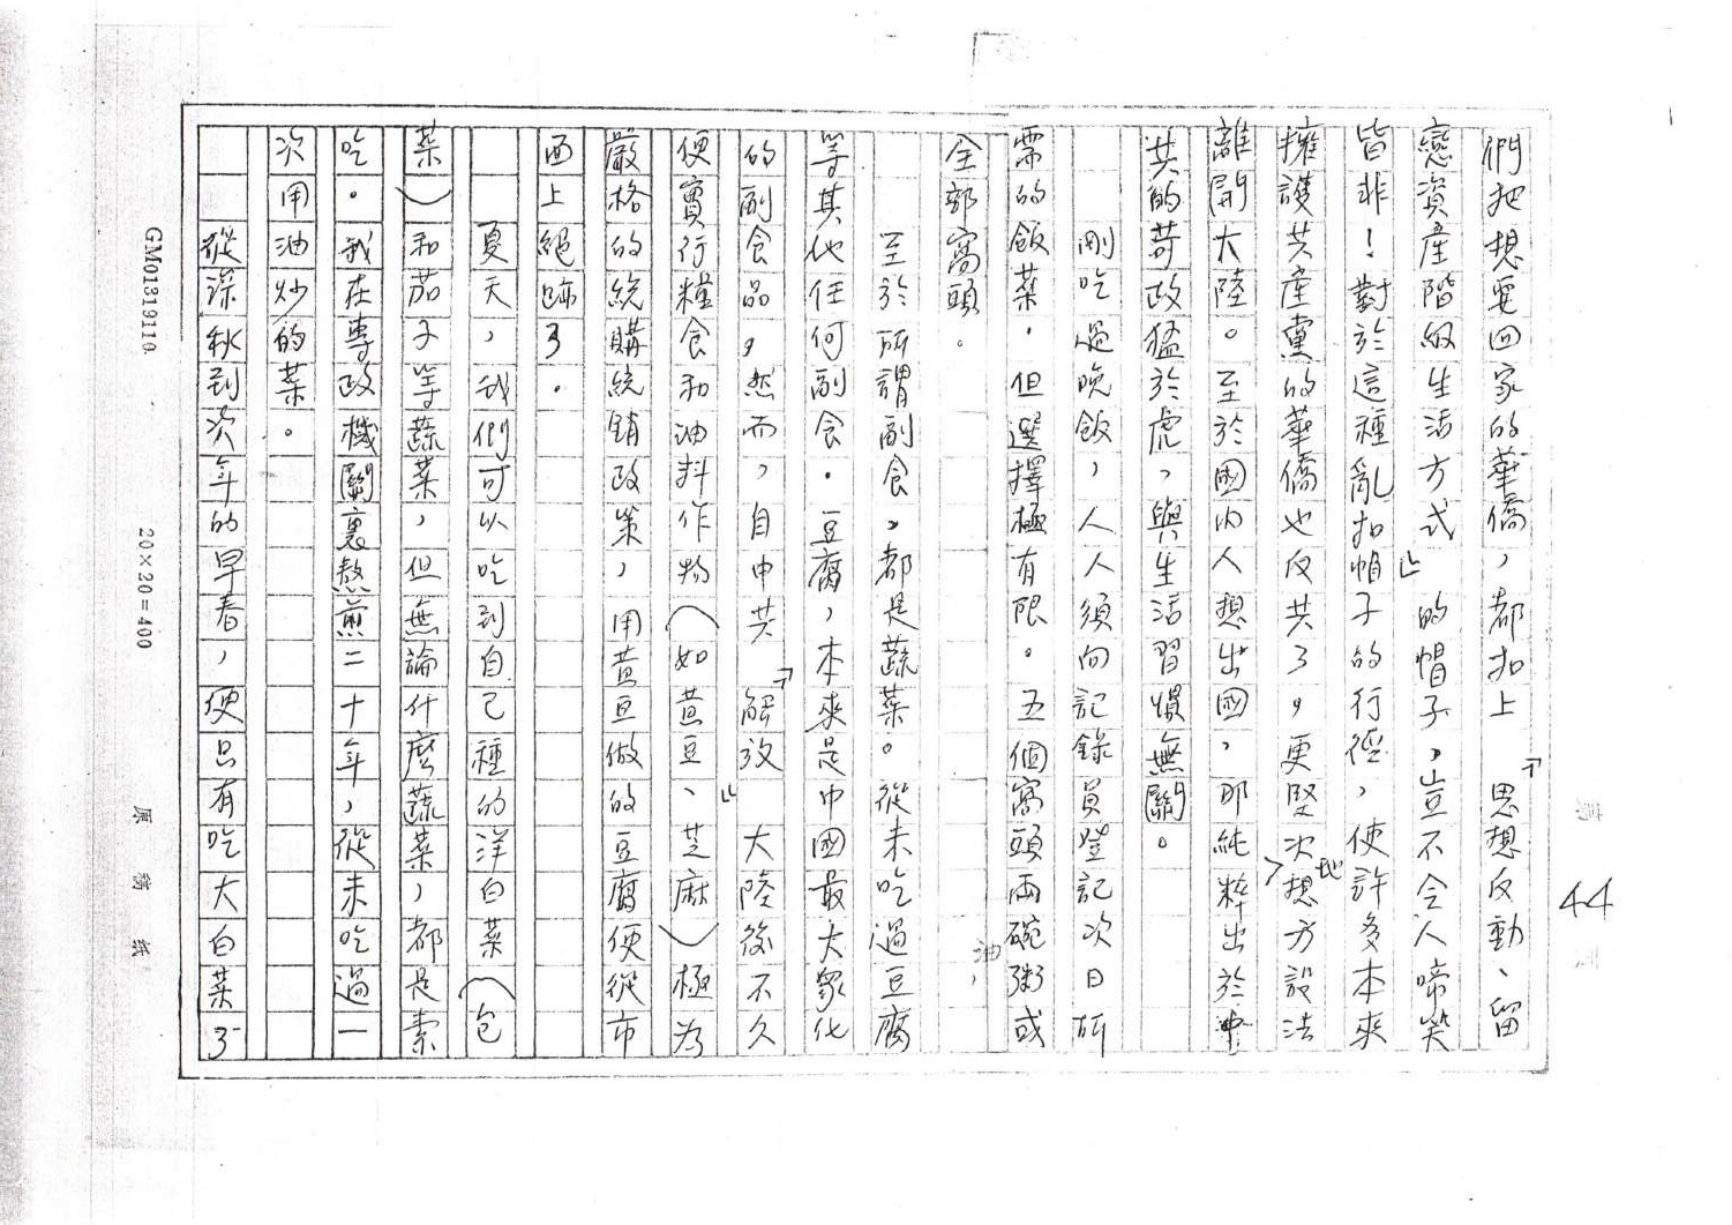 44
們把想要回家的華僑，都扣上『思想反動、留
戀資產階級生活方式』的帽子，豈不令人啼笑
皆非！對於這種亂扣帽子的行徑，使許多本來
擁護共產黨的華僑也反共了，更堅決地想方設法
離開大陸。至於國內人想出國，那純粹出於中
共的苛政猛於虎，與生活習慣無關。
剛吃過晚飯，人人須向記錄員登記次日所
需的飯菜．但選擇極有限。五個窩頭兩碗粥或
全部窩頭。
至於所謂副食，都是蔬菜。從未吃過豆腐
等其他任何副食．豆腐，本來是中國最大眾化
的副食品，然而，自中共『解放』大陸後不久
便實行糧食和油料作物（如黃豆、芝麻）極為
嚴格的統購統銷政策，用黃豆做的豆腐便從市
面上絕跡了．
夏天，我們可以吃到自己種的洋白菜（包
菜）和茄子等蔬菜，但無論什麼蔬菜，都是素
吃。我在專政機關裏熬煎二十年，從未吃過一
次用油炒的菜。
從深秋到次年的早春，便只有吃大白菜了
油，
GM01319110
20×20=400
原稿紙